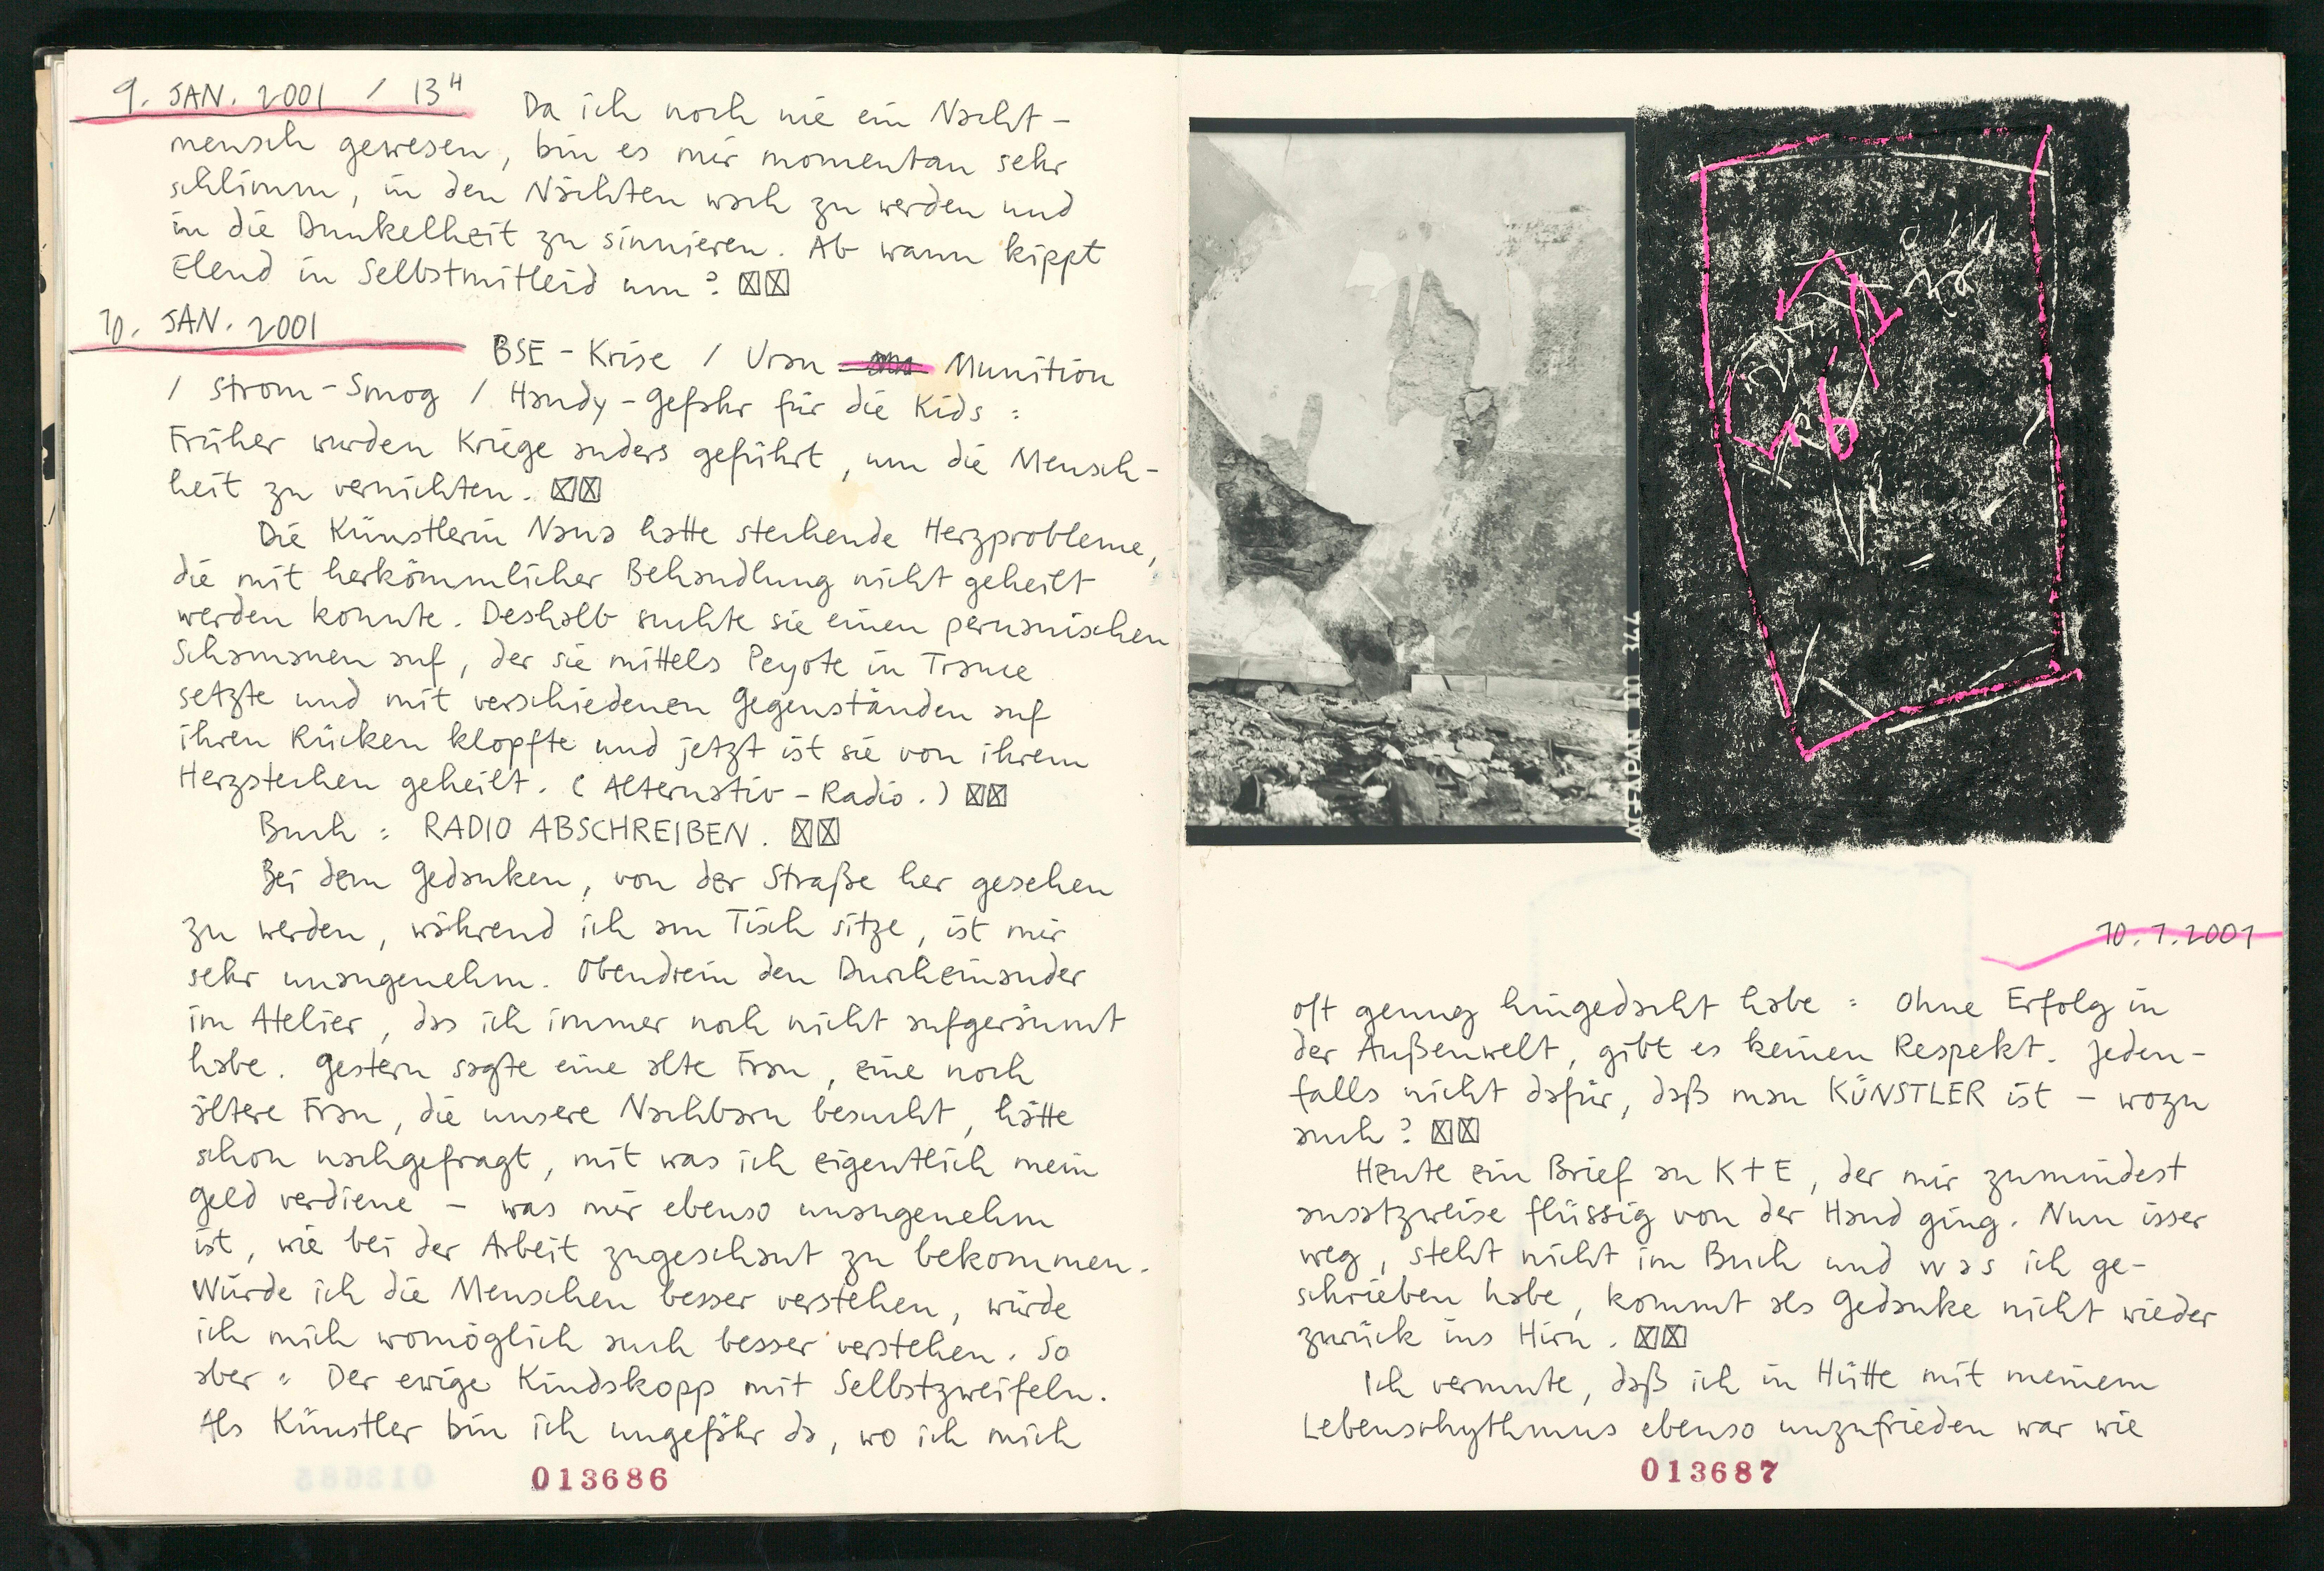 9. JAN. 2001 / 13H
Da ich noch nie ein Nacht-
mensch gewesen, bin es mir momentan sehr
schlimm, in den Nächten wach zu werden und
in die Dunkelheit zu sinnieren. Ab wann kippt
Elend in Selbstmitleid um?
10. JAN. 2001
BSE-Krise / Uran Munition
/ Strom-Smog / Handy-Gefahr für die Kids:
Früher wurden Kriege anders geführt, um die Mensch-
heit zu vernichten.
Die Künstlerin Nana hatte stechende Herzprobleme,
die mit herkömmlicher Behandlung nicht geheilt
werden konnte. Deshalb suchte sie einen peruanischen
Schamanen auf, der sie mittels Peyote in Trance
setzte und mit verschiedenen Gegenständen auf
ihren Rücken klopfte und jetzt ist sie von ihrem
Herzstechen geheilt. (Alternativ-Radio.)
Buch: RADIO ABSCHREIBEN.
Bei dem Gedanken, von der Straße her gesehen
zu werden, während ich am Tisch sitze, ist mir
sehr unangenehm. Obendrein den Durcheinander
im Atelier, das ich immer noch nicht aufgeräumt
habe. Gestern sagte eine alte Frau, eine noch
ältere Frau, die unsere Nachbarn besucht, hätte
schon nachgefragt, mit was ich eigentlich mein
Geld verdiene - was mir ebenso unangenehm
ist, wie bei der Arbeit zugeschaut zu bekommen.
Würde ich die Menschen besser verstehen, würde
ich mich womöglich auch besser verstehen. So
aber: Der ewige Kindskopp mit Selbstzweifeln.
Als Künstler bin ich ungefähr da, wo ich mich
013686
AGFAPAN 100 344
10.1.2001
oft genug hingedacht habe: Ohne Erfolg in
der Außenwelt, gibt es keinen Respekt. Jeden-
falls nicht dafür, daß man KÜNSTLER ist - wozu
auch?
Heute ein Brief an K+E, der mir zumindest
ansatzweise flüssig von der Hand ging. Nun isser
weg, steht nicht im Buch und was ich ge-
schrieben habe, kommt als Gedanke nicht wieder
zurück ins Hirn.
Ich vermute, daß ich in Hütte mit meinem
Lebensrhythmus ebenso unzufrieden war wie
013687